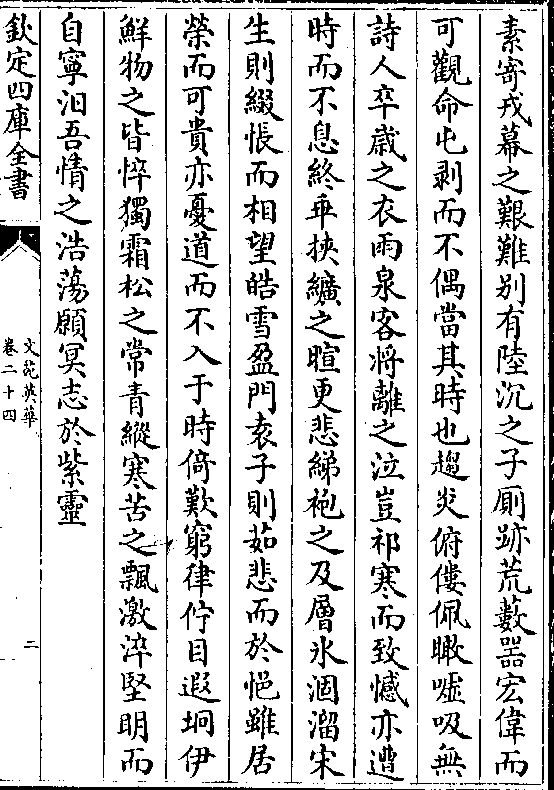 素寄戎幕之艱難别有陸沉之子厠跡荒藪器宏偉而
可觀命屯剥而不偶當其時也趨炎俯僂佩瞰嘘吸無
詩人卒歲之衣雨泉客將離之泣豈祁寒而致憾亦遭
時而不息終乖挾纊之暄更悲綈袍之及層氷涸溜宋
生則綴悵而相望皓雪盈門袁子則茹悲而於悒雖居
榮而可貴亦憂道而不入于時倚歎窮律佇目遐坰伊
鮮物之皆悴獨霜松之常青縱寒苦之飄激淬堅明而
自寧汩吾情之浩蕩願冥志於紫靈
欽定四庫全書
文苑英華
卷二十四
二